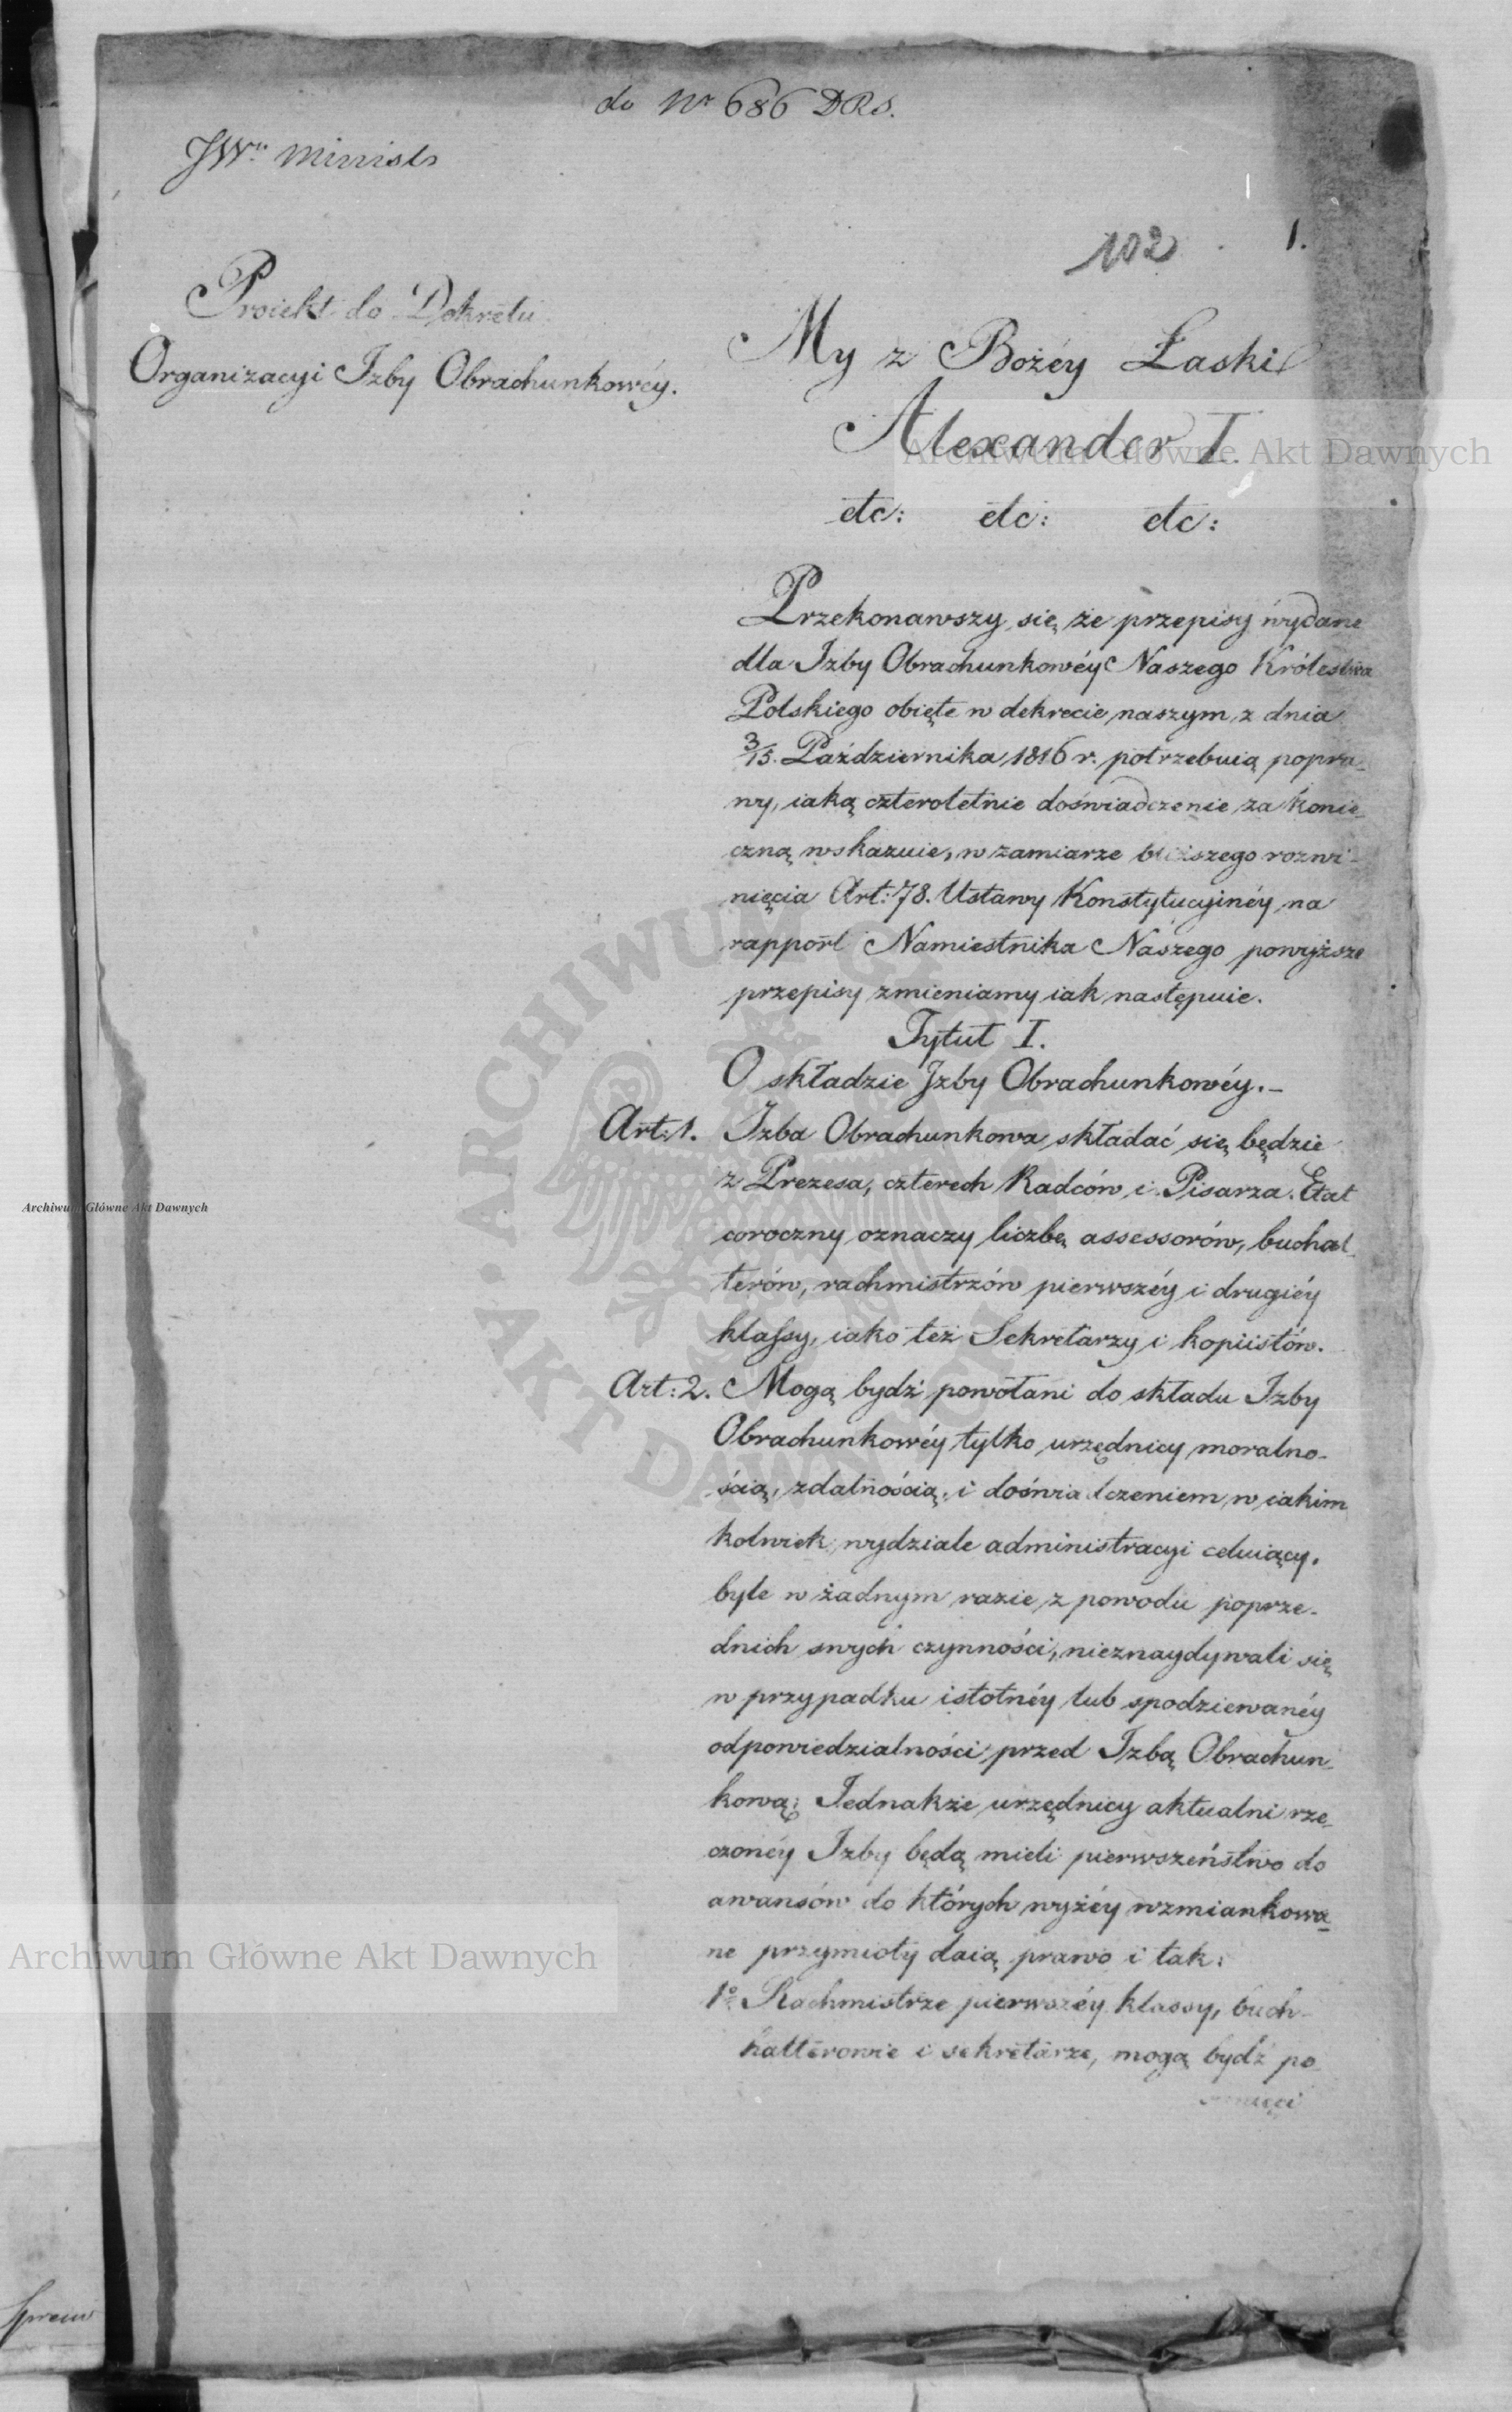 do Nr 686 DRS.
JWu Ministr
102
1.
Proiekt do Dekretu
Organizacyi Izby Obrachunkowéy.
My z Bożéy Łaski
Alexander I.
etc: etc: etc:
Przekonawszy się że przepisy wydane
dla Izby Obrachunkowéy Naszego Królestwa
Polskiego obięte w dekrecie naszym z dnia
3/15. Października 1816 r. potrzebuią popra-
wy, iaką czteroletnie doświadczenie za konie-
czną wskazuie, w zamiarze bliższego rozwi-
nięcia Art: 78. Ustawy Konstytucyinéy na
rapport Namiestnika Naszego powyższe
przepisy zmieniamy iak następuie.
Tytuł I.
O składzie Izby Obrachunkowéy.-
Art: 1. Izba Obrachunkowa składać się będzie
z Prezesa, czterech Radców i Pisarza. Etat
coroczny oznaczy liczbę assessorów, buchal-
terów, rachmistrzów pierwszéy i drugiéy
klassy, iako też Sekretarzy i kopiistów.
Art: 2. Mogą bydź powołani do składu Izby
Obrachunkowéy tylko urzędnicy moralno-
ścią, zdatnością i doświadczeniem w iakim
kolwiek wydziale administracyi celuiący,
byle w żadnym razie z powodu poprze-
dnich swych czynności, nieznaydywali się
w przypadku istotnéy lub spodziewanéy
odpowiedzialności przed Izbą Obrachun-
kową; Iednakże urzędnicy aktualni rze-
czonéy Izby będą mieli pierwszeństwo do
awansów do których wyżéy wzmiankowa-
ne przymioty daią prawo i tak:
1o Rachmistrze pierwszéy klassy, buch-
halterowie i sekretarze, mogą bydź po-
Archiwum Główne Akt Dawnych
Archiwum Główne Akt Dawnych
Archiwum Główne Akt Dawnych
ARCHIWUM GŁÓWNE AKT DAWNYCH